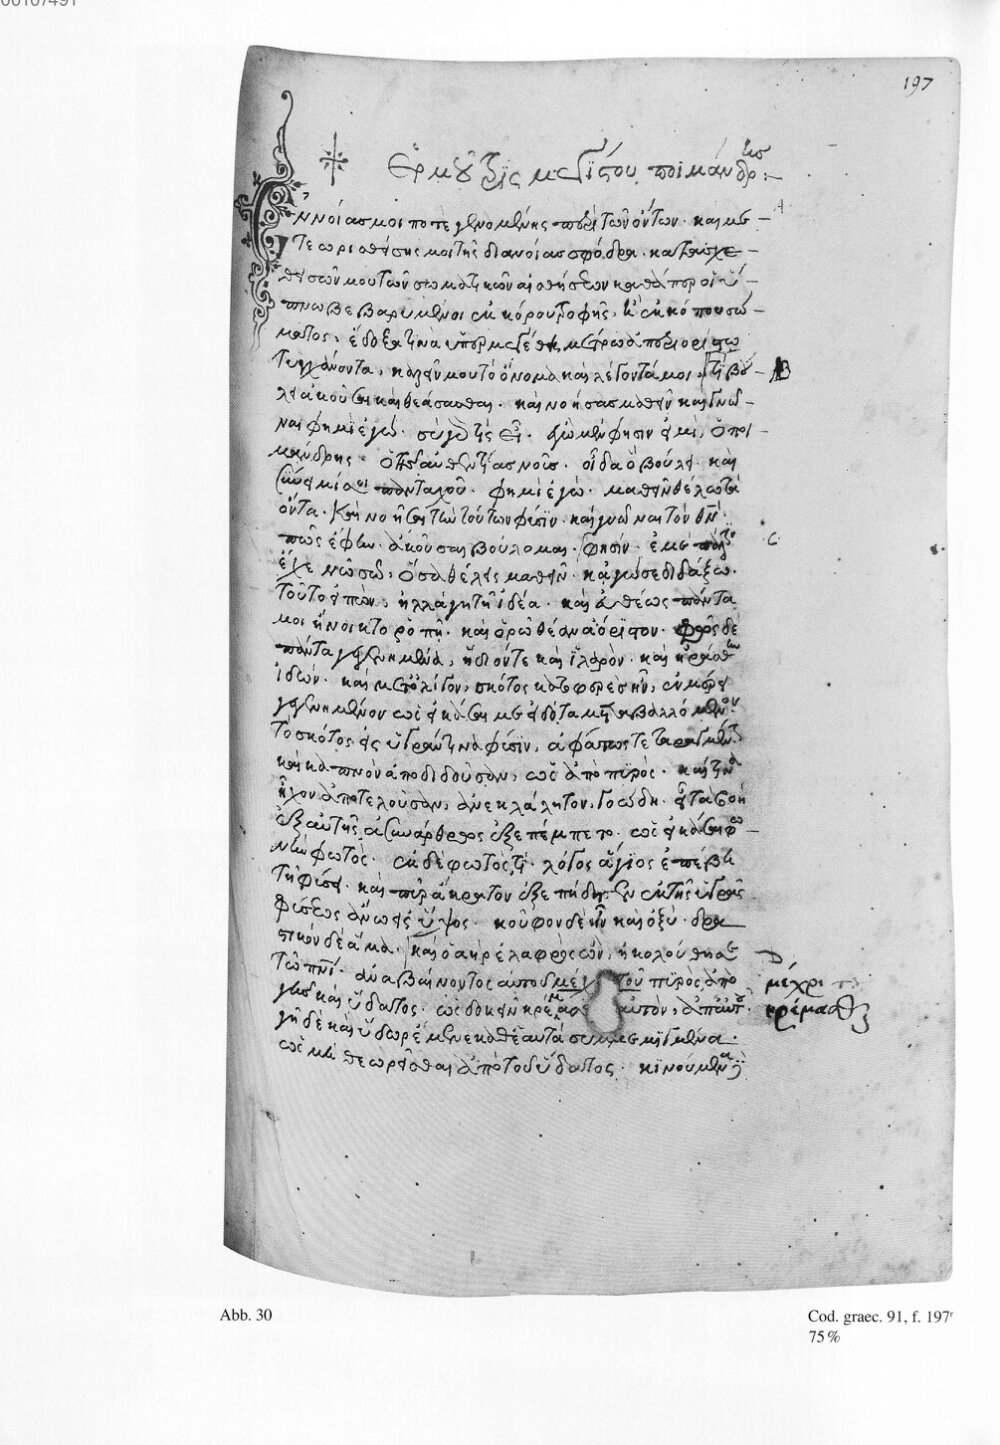 00107491
197
Ἑρμοῦ τρὶς μεγίστου ποιμάνδρης :—
Ἐννοίας μοί ποτε γενομένης περὶ τῶν ὄντων · καὶ με
τεωρισθείσης μοι τῆς διανοίας σφόδρα · κατασχε
θεισῶν μου τῶν σωματικῶν αἰσθήσεων καθάπερ οἱ ὕ
πνω βεβαρυμένοι ἐκ κόρου τροφῆς · ἢ ἐκ κόπου σώ
ματος, ἔδοξα τινὰ ὑπερμεγέθη μέτρω ἀπεριορίστω
τυγχάνοντα, καλεῖν μου τὸ ὄνομα καὶ λέγοντά μοι, τί βού B
λει ἀκοῦσαι καὶ θεάσασθαι · καὶ νοήσας μαθεῖν καὶ γνῶ
ναι φημὶ ἐγώ · σὺ γὰρ τίς εἶ · ἐγὼ μὲν φησὶν εἰμὶ, ὁ ποι
μάνδρης · ὁ τῆς αὐθεντίας νοῦς · οἶδα ὃ βούλει · καὶ
σύνειμί σοι πανταχοῦ · φημὶ ἐγώ · μαθεῖν θέλω τὰ
ὄντα · καὶ νοῆσαι τὴν τούτων φύσιν · καὶ γνῶναι τὸν θν ·
πῶς ἔφην · ἀκοῦσαι βούλομαι · φησὶν · ἐμοὶ πάλιν C
ἔχε νῶ σῶ, ὅσα θέλεις μαθεῖν · κἀγώ σε διδάξω ·
τοῦτο εἰπὼν, ἠλλάγη τῆ ἰδέα · καὶ εὐθέως πάντα
μοι ἤνοικτο ῥοπῆ · καὶ ὁρῶ θέαν ἀόριστον · φῶς δὲ
πάντα γεγενημένα, ἥδιόν τε καὶ ἱλαρὸν · καὶ ἠράσθην
ἰδών · καὶ μετ᾽ ὀλίγον, σκότος κατωφερὲς ἦν, ἐν μέρει
γεγενημένον ὡς εἰκάσαι με εἰδότα μεταβαλλόμενον
τὸ σκότος εἰς ὑγράν τινα φύσιν, ἀφάτως τεταραγμένην
καὶ καπνὸν ἀποδιδοῦσαν, ὡς ἀπὸ πυρός · καί τινα
ἦχον ἀποτελοῦσαν, ἀνεκλάλητον, γοώδη · εἶτα βοὴ
ἐξ αὐτῆς ἀσυνάρθρως ἐξεπέμπετο · ὡς εἰκάσαι φω
νὴν φωτός · ἐκ δὲ φωτός, τι · λόγος ἅγιος ἐπέβη
τῆ φύσει · καὶ πῦρ ἄκρατον ἐξεπήδησεν ἐκ τῆς ὑγρᾶς
φύσεως ἄνω εἰς ὕψος · κοῦφον δὲ ἦν καὶ ὀξὺ · δρα
στικόν δὲ ἅμα · καὶ ὁ ἀὴρ ἐλαφρὸς ὢν, ἠκολούθησε D
τῶ πνι · ἀναβαίνοντος αὐτοῦ μέχρι τοῦ πυρὸς, ἀπὸ μέχρι τοῦ
γῆς καὶ ὕδατος · ὡς δοκεῖν κρέμασθαι αὐτὸν, ἀπ᾽ αὐτοῦ · κρέμασθαι
γῆ δὲ καὶ ὕδωρ ἔμενε καθ᾽ ἑαυτὰ συμμεμιγμένα ·
ὡς μὴ θεωρεῖσθαι ἀπὸ τοῦ ὕδατος · κινούμενα
Abb. 30
Cod. graec. 91, f. 197r
75 %